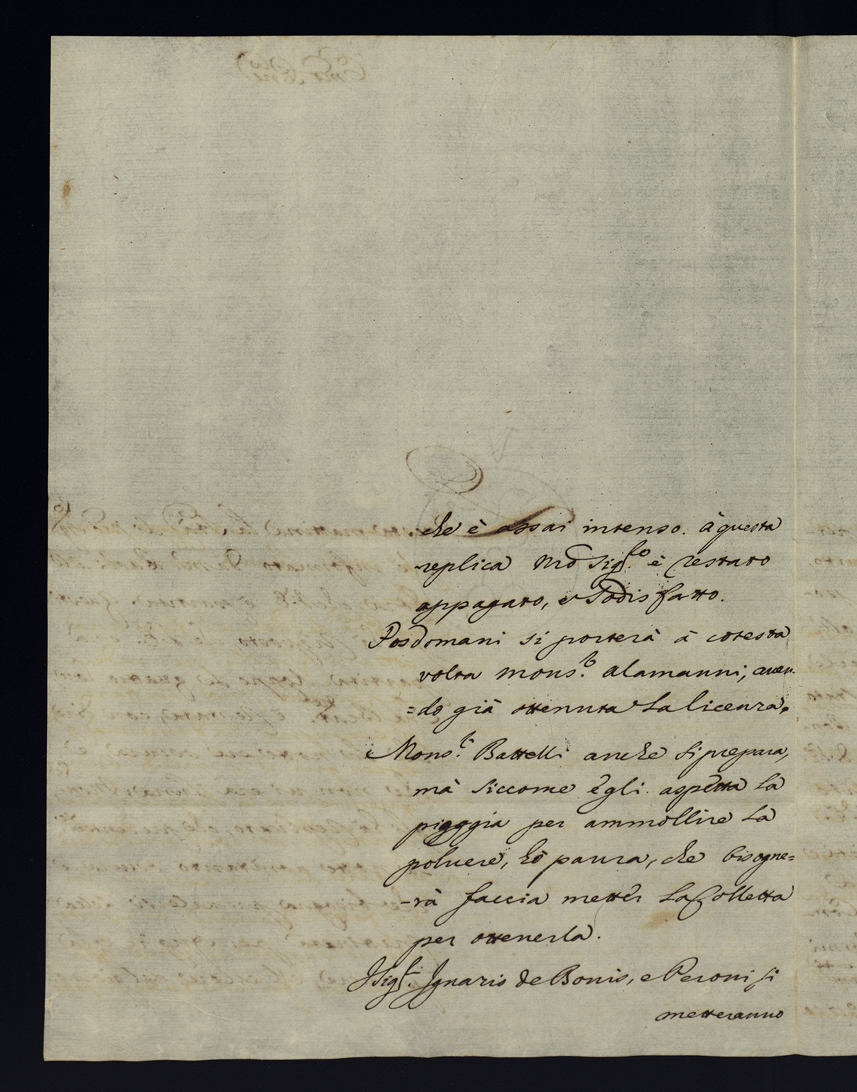 che è assai intenso. à questa
replica md Sig.ro è restato
appagato, e Sodisfatto.
Posdomani si porterà à cotesta
volta mons.r Alamanni, aven-
=do già ottenuta la licenza.
Mons.r Battelli anche si prepara,
mà siccome egli aspetta la
pioggia per ammollire la
polvere, hò paura, che bisogne=
-rà faccia metter la Colletta
per ottenerla.
I Sig.ri Ignazio de Bonis, e Peroni si
metteranno